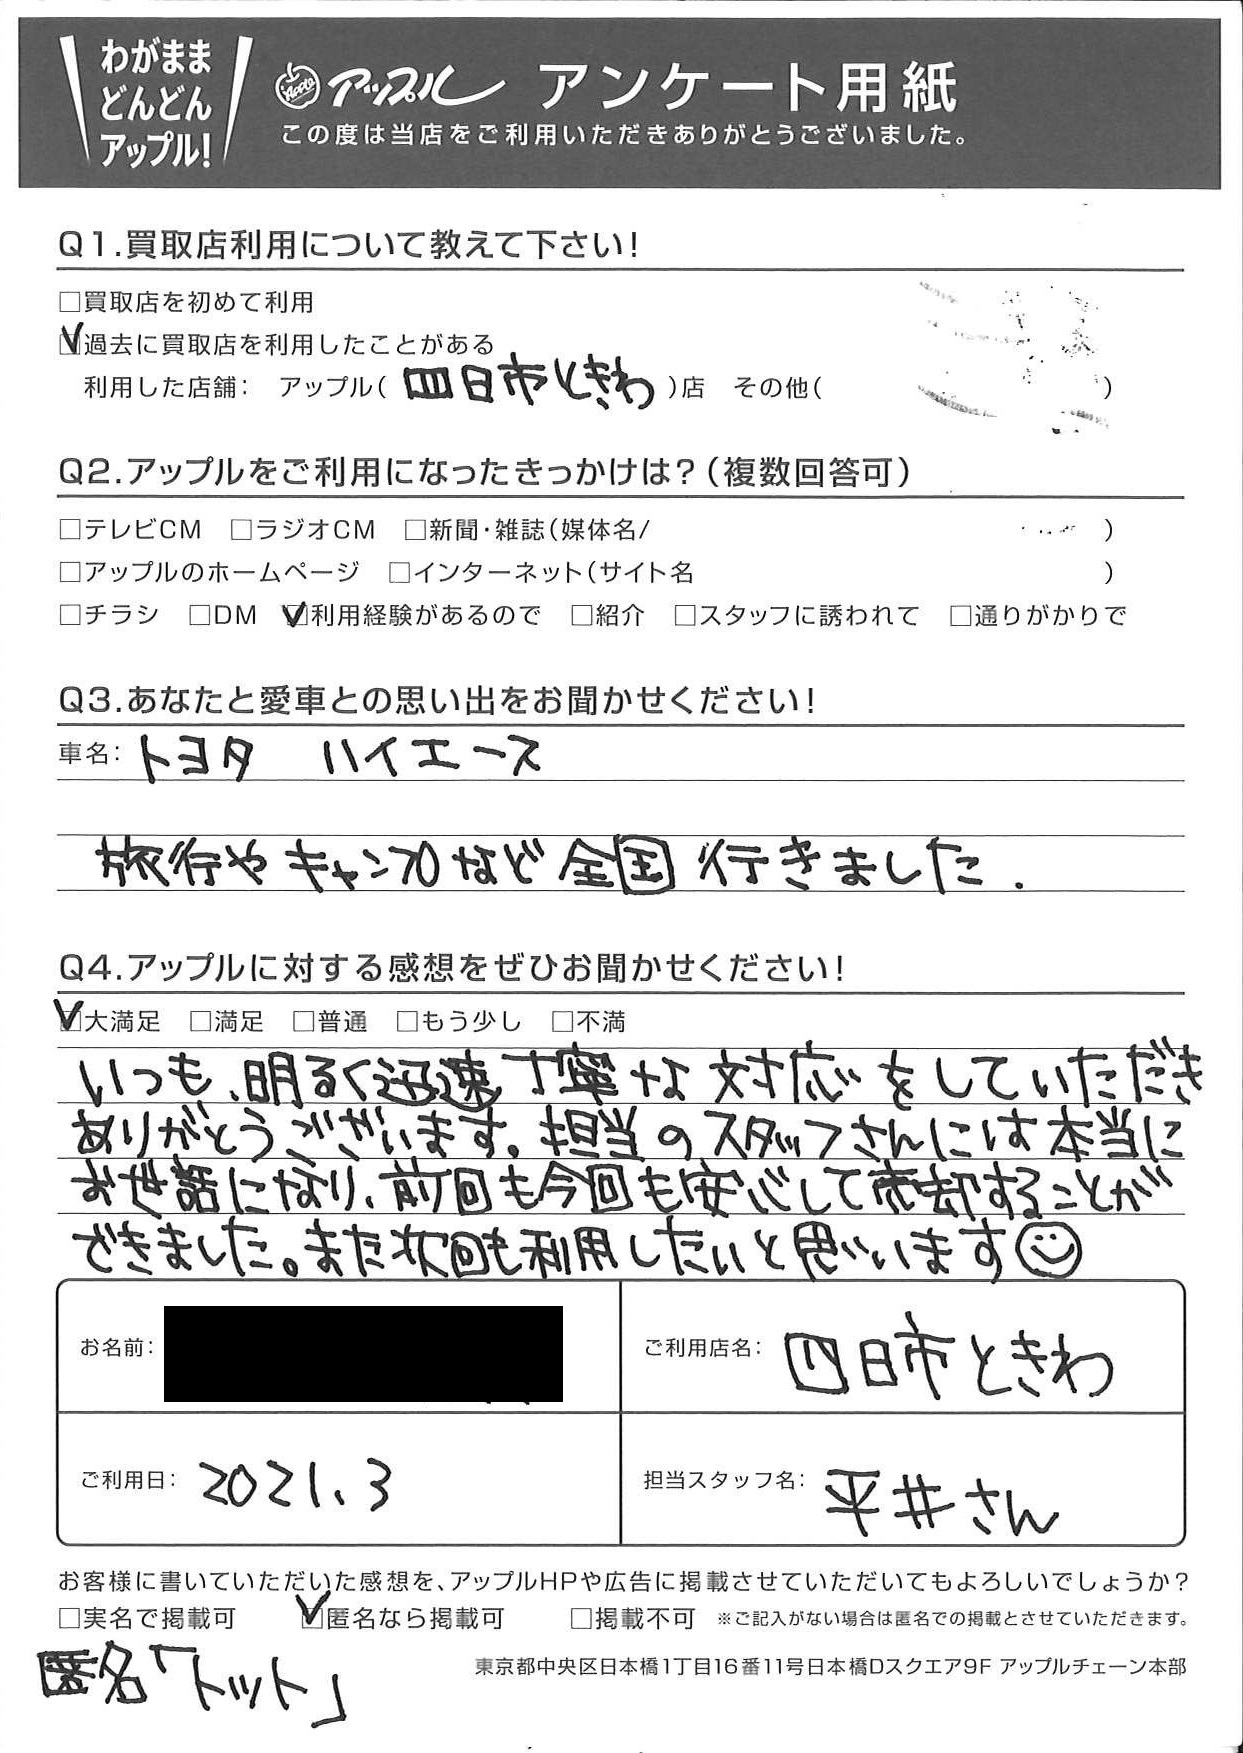 わがまま
どんどん
アップル!
Apple アップル アンケート用紙
この度は当店をご利用いただきありがとうございました。
Q1.買取店利用について教えて下さい!
□買取店を初めて利用
☑過去に買取店を利用したことがある
利用した店舗: アップル( 四日市ときわ )店 その他( )
Q2.アップルをご利用になったきっかけは?(複数回答可)
□テレビCM □ラジオCM □新聞・雑誌(媒体名/ )
□アップルのホームページ □インターネット(サイト名 )
□チラシ □DM ☑利用経験があるので □紹介 □スタッフに誘われて □通りがかりで
Q3.あなたと愛車との思い出をお聞かせください!
車名: トヨタ ハイエース
旅行やキャンプなど全国行きました.
Q4.アップルに対する感想をぜひお聞かせください!
☑大満足 □満足 □普通 □もう少し □不満
いつも、明るく迅速丁寧な対応をしていただき
ありがとうございます。担当のスタッフさんには本当に
お世話になり、前回も今回も安心して売却することが
できました。また次回も利用したいと思います☺
お名前:
ご利用店名: 四日市ときわ
ご利用日: 2021.3
担当スタッフ名: 平井さん
お客様に書いていただいた感想を、アップルHPや広告に掲載させていただいてもよろしいでしょうか?
□実名で掲載可 ☑匿名なら掲載可 □掲載不可 ※ご記入がない場合は匿名での掲載とさせていただきます。
匿名「トット」
東京都中央区日本橋1丁目16番11号日本橋Dスクエア9F アップルチェーン本部